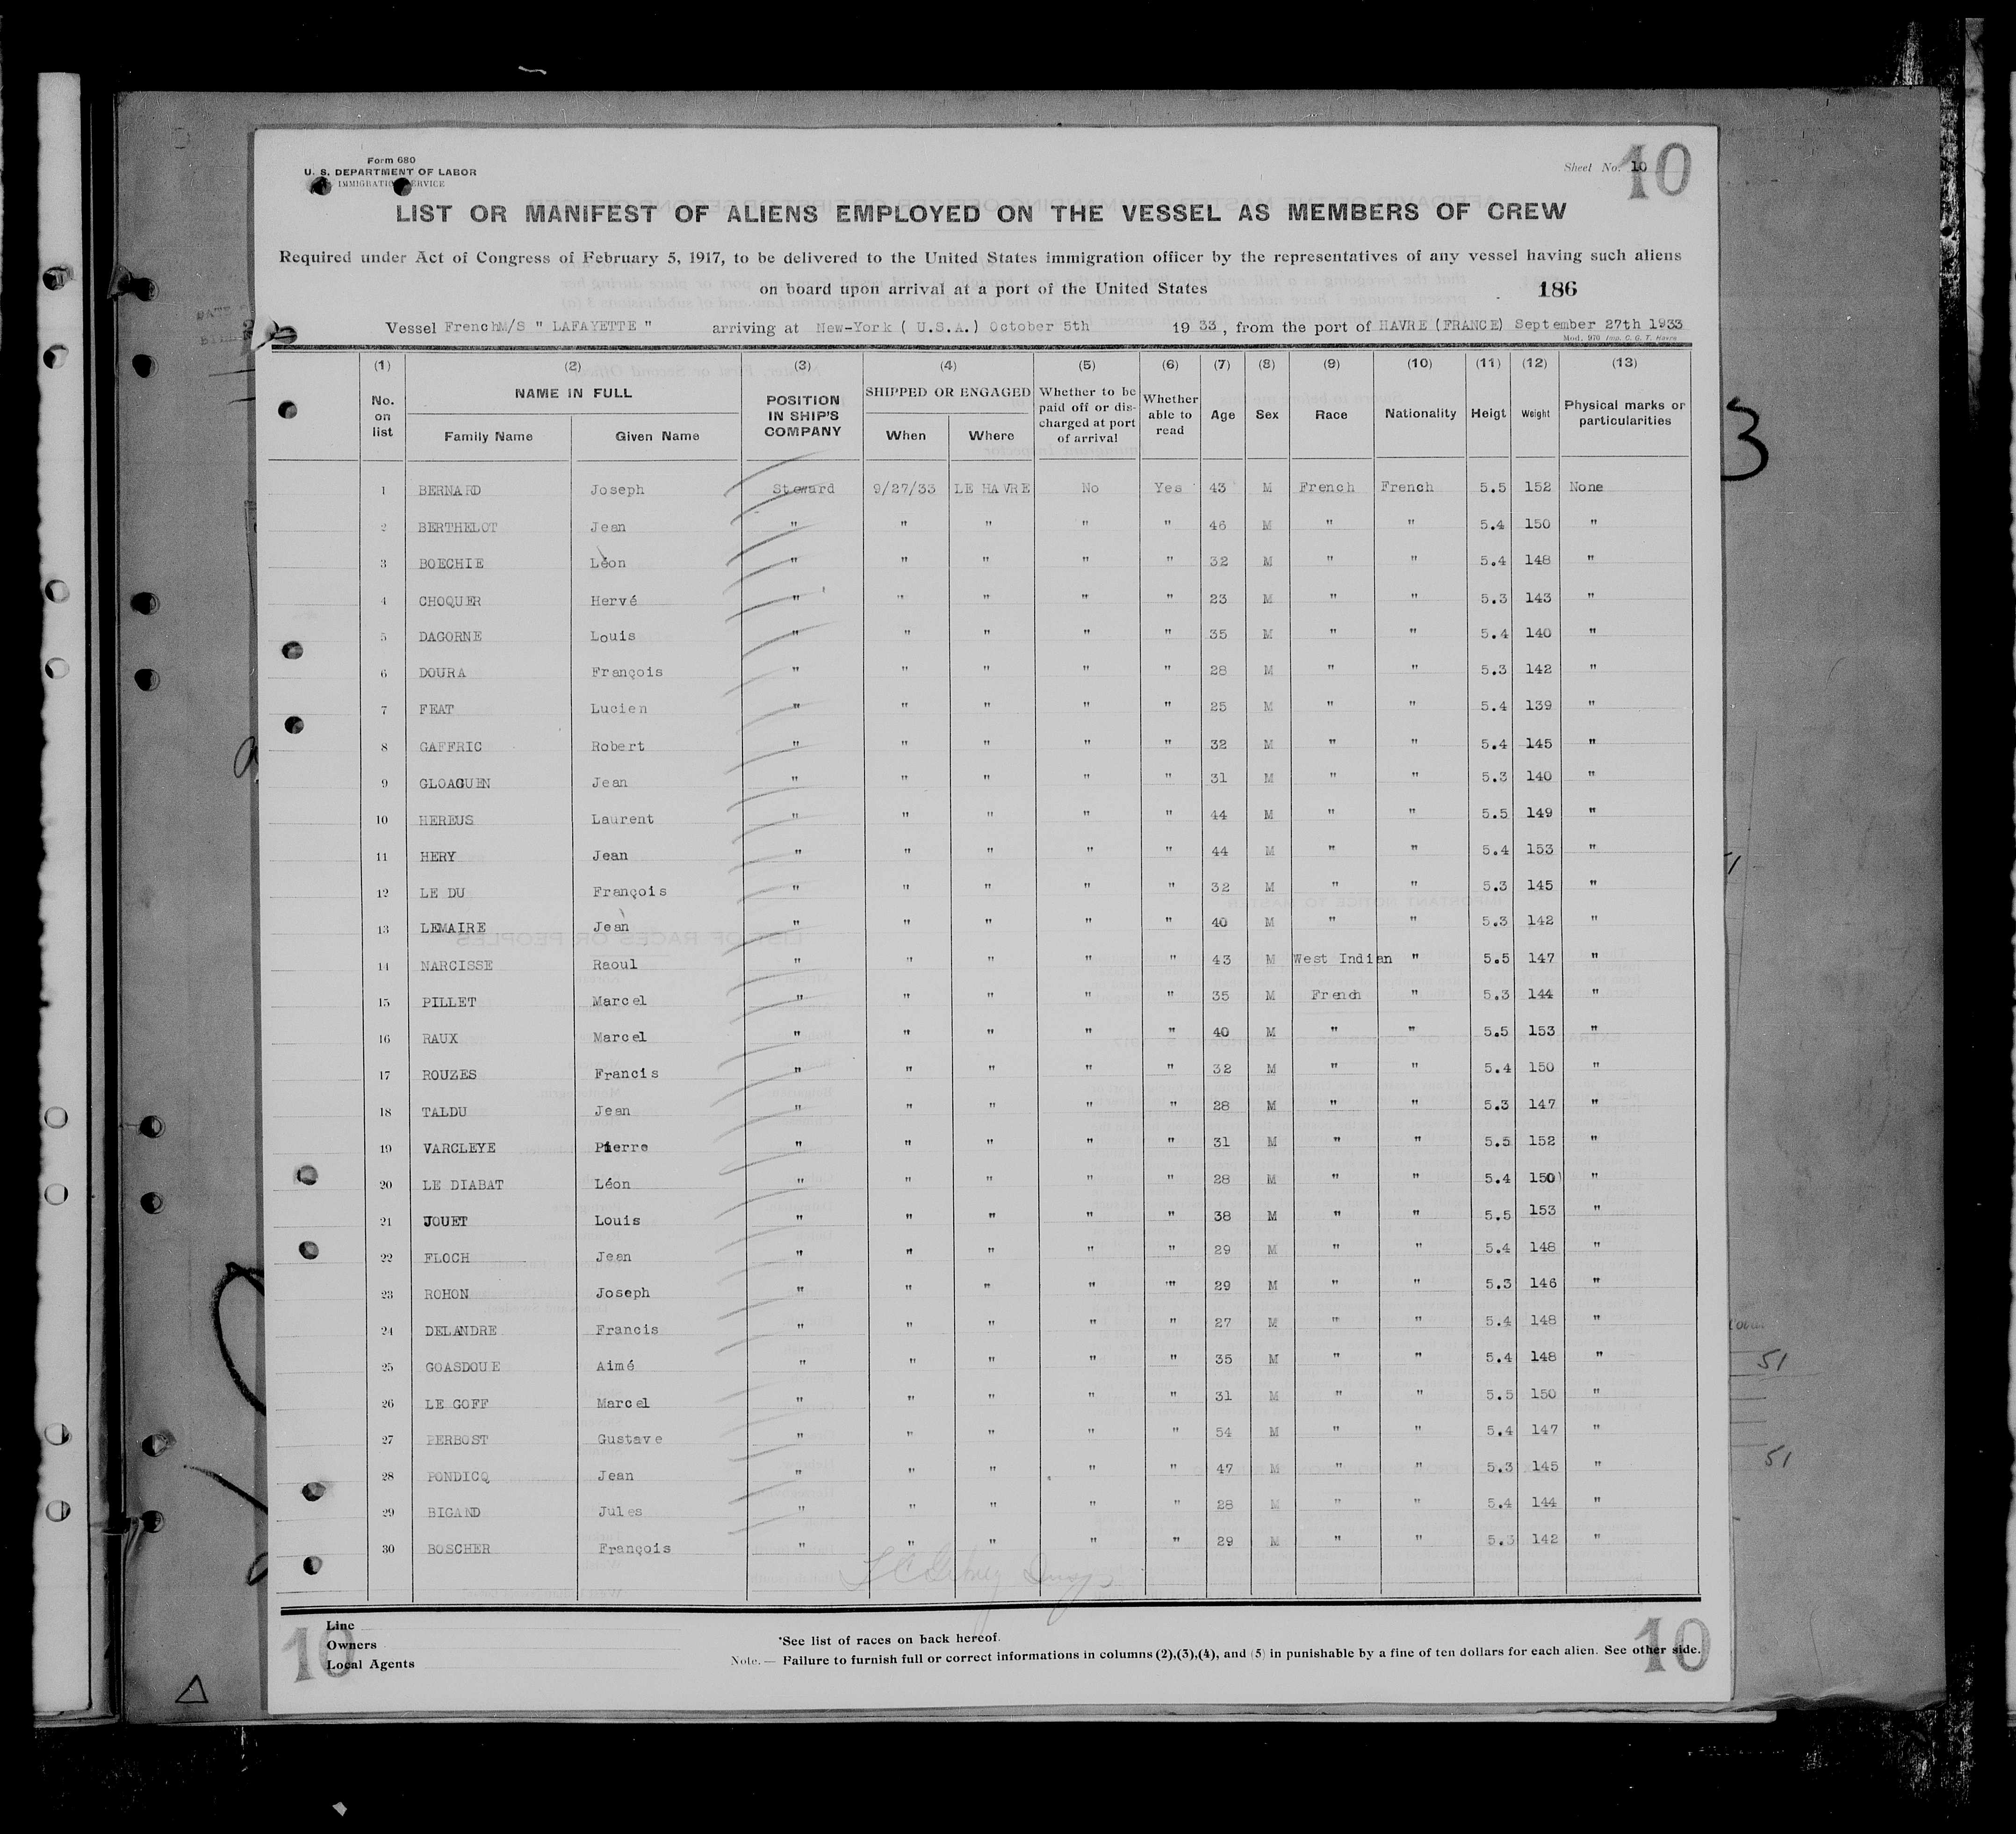 Form 680
U. S. DEPARTMENT OF LABOR
IMMIGRATION SERVICE
Sheet No. 10
10
LIST OR MANIFEST OF ALIENS EMPLOYED ON THE VESSEL AS MEMBERS OF CREW
Required under Act of Congress of February 5, 1917, to be delivered to the United States immigration officer by the representatives of any vessel having such aliens
on board upon arrival at a port of the United States
186
Vessel French M/S " LAFAYETTE " arriving at New-York ( U.S.A.) October 5th 19 33, from the port of HAVRE (FRANCE) September 27th 1933
Mod. 970 Imp. C. G. T. Havre
(1) (2) (3) (4) (5) (6) (7) (8) (9) (10) (11) (12) (13)
No. on list NAME IN FULL Family Name Given Name POSITION IN SHIP'S COMPANY SHIPPED OR ENGAGED When Where Whether to be paid off or discharged at port of arrival Whether able to read Age Sex Race Nationality Heigt Weight Physical marks or particularities
1 BERNARD Joseph Steward 9/27/33 LE HAVRE No Yes 43 M French French 5.5 152 None
2 BERTHELOT Jean " " " " " 46 M " " 5.4 150 "
3 BOECHIE Léon " " " " " 32 M " " 5.4 148 "
4 CHOQUER Hervé " " " " " 23 M " " 5.3 143 "
5 DAGORNE Louis " " " " " 35 M " " 5.4 140 "
6 DOURA François " " " " " 28 M " " 5.3 142 "
7 FEAT Lucien " " " " " 25 M " " 5.4 139 "
8 GAFFRIC Robert " " " " " 32 M " " 5.4 145 "
9 GLOAGUEN Jean " " " " " 31 M " " 5.3 140 "
10 HEREUS Laurent " " " " " 44 M " " 5.5 149 "
11 HERY Jean " " " " " 44 M " " 5.4 153 "
12 LE DU François " " " " " 32 M " " 5.3 145 "
13 LEMAIRE Jean " " " " " 40 M " " 5.3 142 "
14 NARCISSE Raoul " " " " " 43 M West Indian " 5.5 147 "
15 PILLET Marcel " " " " " 35 M French " 5.3 144 "
16 RAUX Marcel " " " " " 40 M " " 5.5 153 "
17 ROUZES Francis " " " " " 32 M " " 5.4 150 "
18 TALDU Jean " " " " " 28 M " " 5.3 147 "
19 VARCLEYE Pierre " " " " " 31 M " " 5.5 152 "
20 LE DIABAT Léon " " " " " 28 M " " 5.4 150 "
21 JOUET Louis " " " " " 38 M " " 5.5 153 "
22 FLOCH Jean " " " " " 29 M " " 5.4 148 "
23 ROHON Joseph " " " " " 29 M " " 5.3 146 "
24 DELANDRE Francis " " " " " 27 M " " 5.4 148 "
25 GOASDOUE Aimé " " " " " 35 M " " 5.4 148 "
26 LE GOFF Marcel " " " " " 31 M " " 5.5 150 "
27 PERBOST Gustave " " " " " 54 M " " 5.4 147 "
28 PONDICQ Jean " " " " " 47 M " " 5.3 145 "
29 BIGAND Jules " " " " " 28 M " " 5.4 144 "
30 BOSCHER François " " " " " 29 M " " 5.3 142 "
Line
Owners
Local Agents
10
*See list of races on back hereof.
Note. — Failure to furnish full or correct informations in columns (2),(3),(4), and (5) in punishable by a fine of ten dollars for each alien. See other side.
10
3
51
51